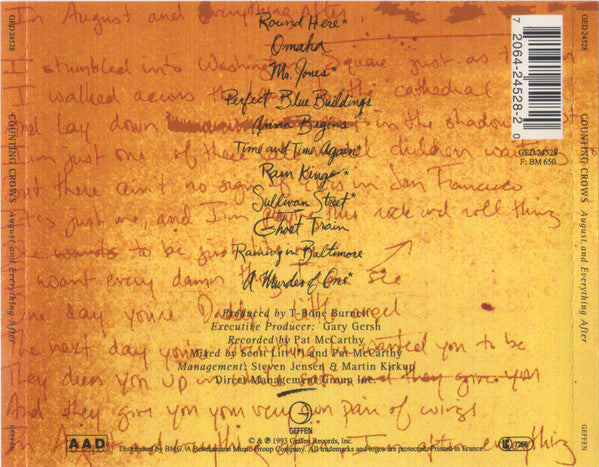 In August and Everything After
Round Here*
Omaha
I stumbled into Washington Square just as
Mr. Jones*
I walked across the cathedral
Perfect Blue Buildings
and lay down in the shadow
Anna Begins
Time and Time Again*
I'm just one of these children
Rain King*
there ain't no sign of in San Francisco
Sullivan Street*
just me and I'm this rock and roll thing
Ghost Train
wants to be just
Raining in Baltimore
want every damn thing I see
A Murder of One*
One day you're Daddy's little angel
Produced by T-Bone Burnett
Executive Producer: Gary Gersh
Recorded by Pat McCarthy
The next day you're wanted you to be
Mixed by Scott Litt* and Pat McCarthy
Management: Steven Jensen & Martin Kirkup
They dress you up in they give you
Direct Management Group Inc.
And they give you your very own pair of wings
In August and everything after I'm after everything
GEFFEN
AAD
℗ & © 1993 Geffen Records, Inc.
Distributed by BMG. A Bertelsmann Music Group Company. All trademarks and logos are protected. Printed in France.
LC 7266
7 2064-24528-2 0
GED 24528
F: BM 650
GED 24528
COUNTING CROWS August and Everything After
GEFFEN
GED 24528
COUNTING CROWS August and Everything After
GEFFEN